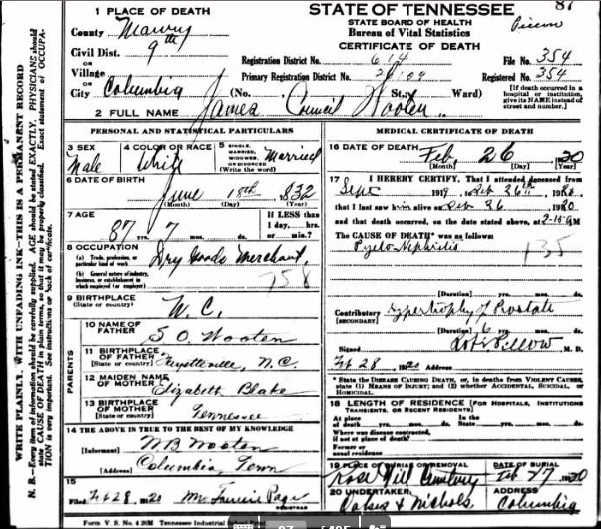 STATE OF TENNESSEE
STATE BOARD OF HEALTH
Bureau of Vital Statistics
CERTIFICATE OF DEATH
1 PLACE OF DEATH
County Maury
Civil Dist. 9th
OR
Village
OR
City Columbia (No. St.; Ward)
Registration District No. 614
File No. 354
Primary Registration District No.
Registered No. 354
[If death occurred in a hospital or institution, give its NAME instead of street and number.]
2 FULL NAME James Council Wooten
PERSONAL AND STATISTICAL PARTICULARS
3 SEX Male
4 COLOR OR RACE White
5 SINGLE, MARRIED, WIDOWED, OR DIVORCED (Write the word) Married
6 DATE OF BIRTH
June 18th, 832
(Month) (Day) (Year)
7 AGE
87 yrs. 7 mos. ds.
If LESS than 1 day, hrs. or min.?
8 OCCUPATION
(a) Trade, profession, or particular kind of work Dry Goods Merchant
(b) General nature of industry, business, or establishment in which employed (or employer)
758
9 BIRTHPLACE
(State or country) N.C.
PARENTS
10 NAME OF FATHER S O. Wooten
11 BIRTHPLACE OF FATHER
(State or country) Fayetteville, N.C.
12 MAIDEN NAME OF MOTHER Elizabeth Blake
13 BIRTHPLACE OF MOTHER
(State or country) Tennessee
14 THE ABOVE IS TRUE TO THE BEST OF MY KNOWLEDGE
(Informant) W B Wooten
(Address) Columbia, Tenn
15
Filed Feb 28 1920 Page
REGISTRAR
MEDICAL CERTIFICATE OF DEATH
16 DATE OF DEATH
Feb 26 1920
(Month) (Day) (Year)
17 I HEREBY CERTIFY, That I attended deceased from
Sept 1919, Feb 26th 1920
that I last saw him alive on Feb 26 1920
and that death occurred, on the date stated above, at 2-15 M
The CAUSE OF DEATH* was as follows:
Pyelo-Nephritis
135
(Duration) yrs. mos. ds.
Contributory Hypertrophy of Prostate
[SECONDARY]
(Duration) 6 yrs. mos. ds.
Signed Pillow M. D.
Feb 28 1920 Address
* State the DISEASE CAUSING DEATH, or, in deaths from VIOLENT CAUSES, state (1) MEANS OF INJURY; and (2) whether ACCIDENTAL, SUICIDAL, OR HOMICIDAL.
18 LENGTH OF RESIDENCE (FOR HOSPITALS, INSTITUTIONS, TRANSIENTS, OR RECENT RESIDENTS)
At place of death yrs. mos. ds. In the State yrs. mos. ds.
Where was disease contracted, if not at place of death?
Former or usual residence
19 PLACE OF BURIAL OR REMOVAL Rose Hill Cemetery
DATE OF BURIAL Feb 27 1920
20 UNDERTAKER & Nichols
ADDRESS Columbia
Form V. S. No. 4
WRITE PLAINLY, WITH UNFADING INK—THIS IS A PERMANENT RECORD
N. B.—Every item of information should be carefully supplied. AGE should be stated EXACTLY. PHYSICIANS should state CAUSE OF DEATH in plain terms, so that it may be properly classified. Exact statement of OCCUPATION is very important. See instructions on back of certificate.